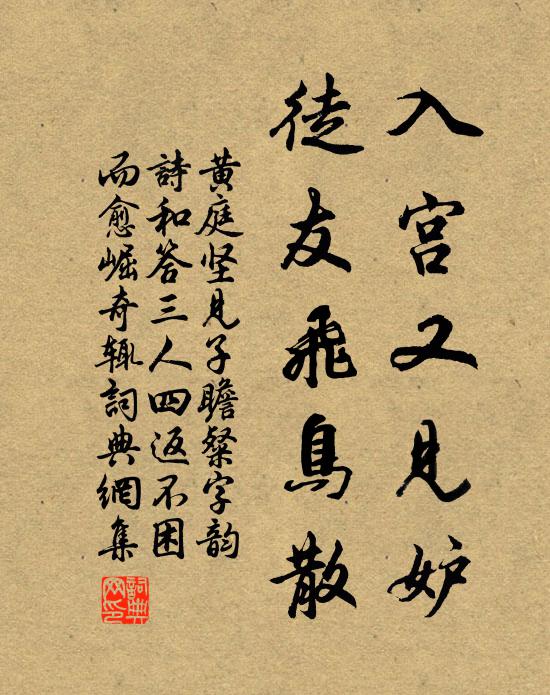 入宫又見妒
徒友飛鳥散
黄庭坚見子瞻粲字韵
詩和答三人四返不困
而愈崛奇輒詞典網集
詞典網印